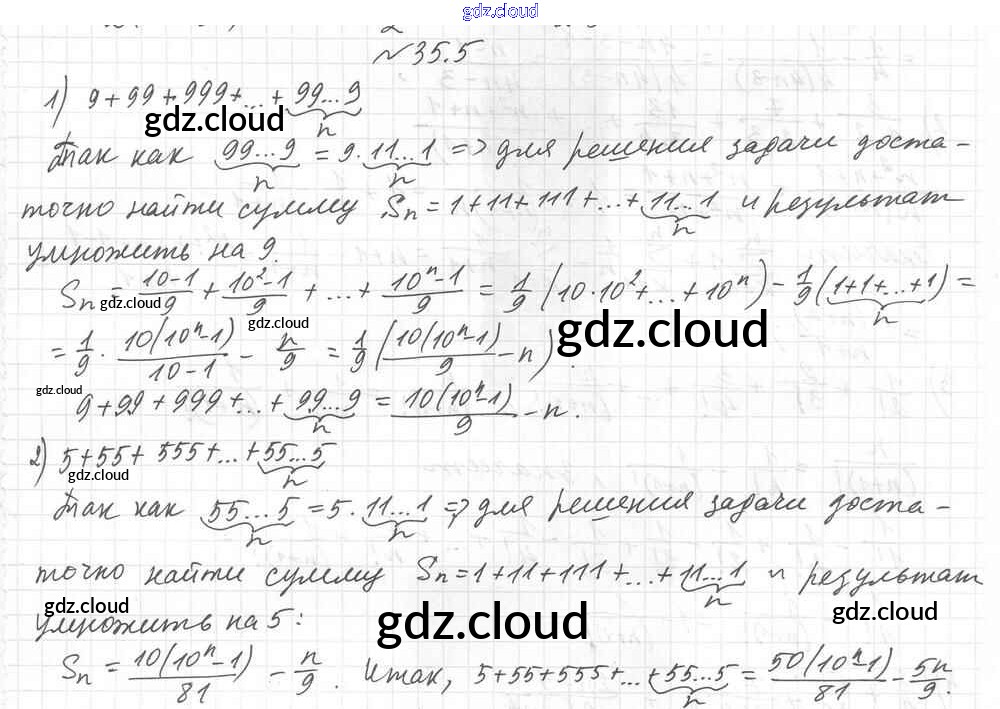 gdz.cloud
№35.5
1) 9+99+999+...+99...9
n
gdz.cloud
Так как 99...9 = 9·11...1 => для решения задачи доста-
n n
точно найти сумму Sn = 1+11+111+...+11...1 и результат
n
умножить на 9.
Sn = (10-1)/9 + (10²-1)/9 + ... + (10ⁿ-1)/9 = 1/9 (10·10²+...+10ⁿ) - 1/9 (1+1+...+1) =
n
gdz.cloud
gdz.cloud
gdz.cloud
= 1/9 · 10(10ⁿ-1)/(10-1) - n/9 = 1/9 (10(10ⁿ-1)/9 - n).
gdz.cloud
9+99+999+...+99...9 = 10(10ⁿ-1)/9 - n.
n
2) 5+55+555+...+55...5
n
gdz.cloud
Так как 55...5 = 5·11...1 => для решения задачи доста-
n n
точно найти сумму Sn = 1+11+111+...+11...1 и результат
n
gdz.cloud
gdz.cloud
gdz.cloud
умножить на 5:
Sn = 10(10ⁿ-1)/81 - n/9. Итак, 5+55+555+...+55...5 = 50(10ⁿ-1)/81 - 5n/9.
n